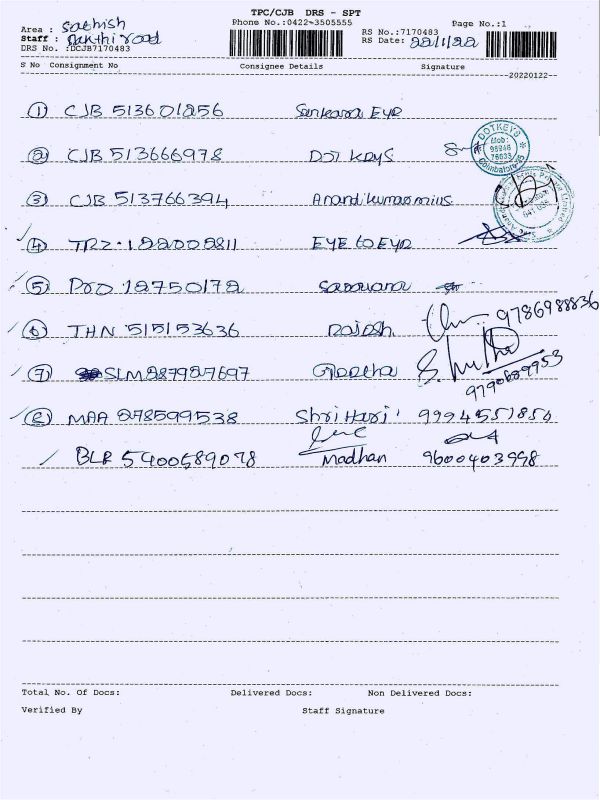 TPC/CJB DRS - SPT
Phone No.:0422-3505555 Page No.:1
Area : Sathish
Staff : road
DRS No. :DCJB7170483
RS No.:7170483
RS Date: 22/1/22
S No Consignment No Consignee Details Signature
20220122
① CJB 513601256 Sankara Eye
② CJB 513666978 Dot Keys
DOTKEYS
Mob:
Coimbatore
③ CJB 513766394
④ TRZ. 122002811 EYE to EYE
⑤ PTO 12750172 Saravana
⑥ THN 515153636 Rajesh 9786988836
⑦ SLM 287927697 Geetha
⑧ MAA 278599538 Shri Hari 9994551850
BLR 5400589078 Madhan 9600403998
Total No. Of Docs: Delivered Docs: Non Delivered Docs:
Verified By Staff Signature